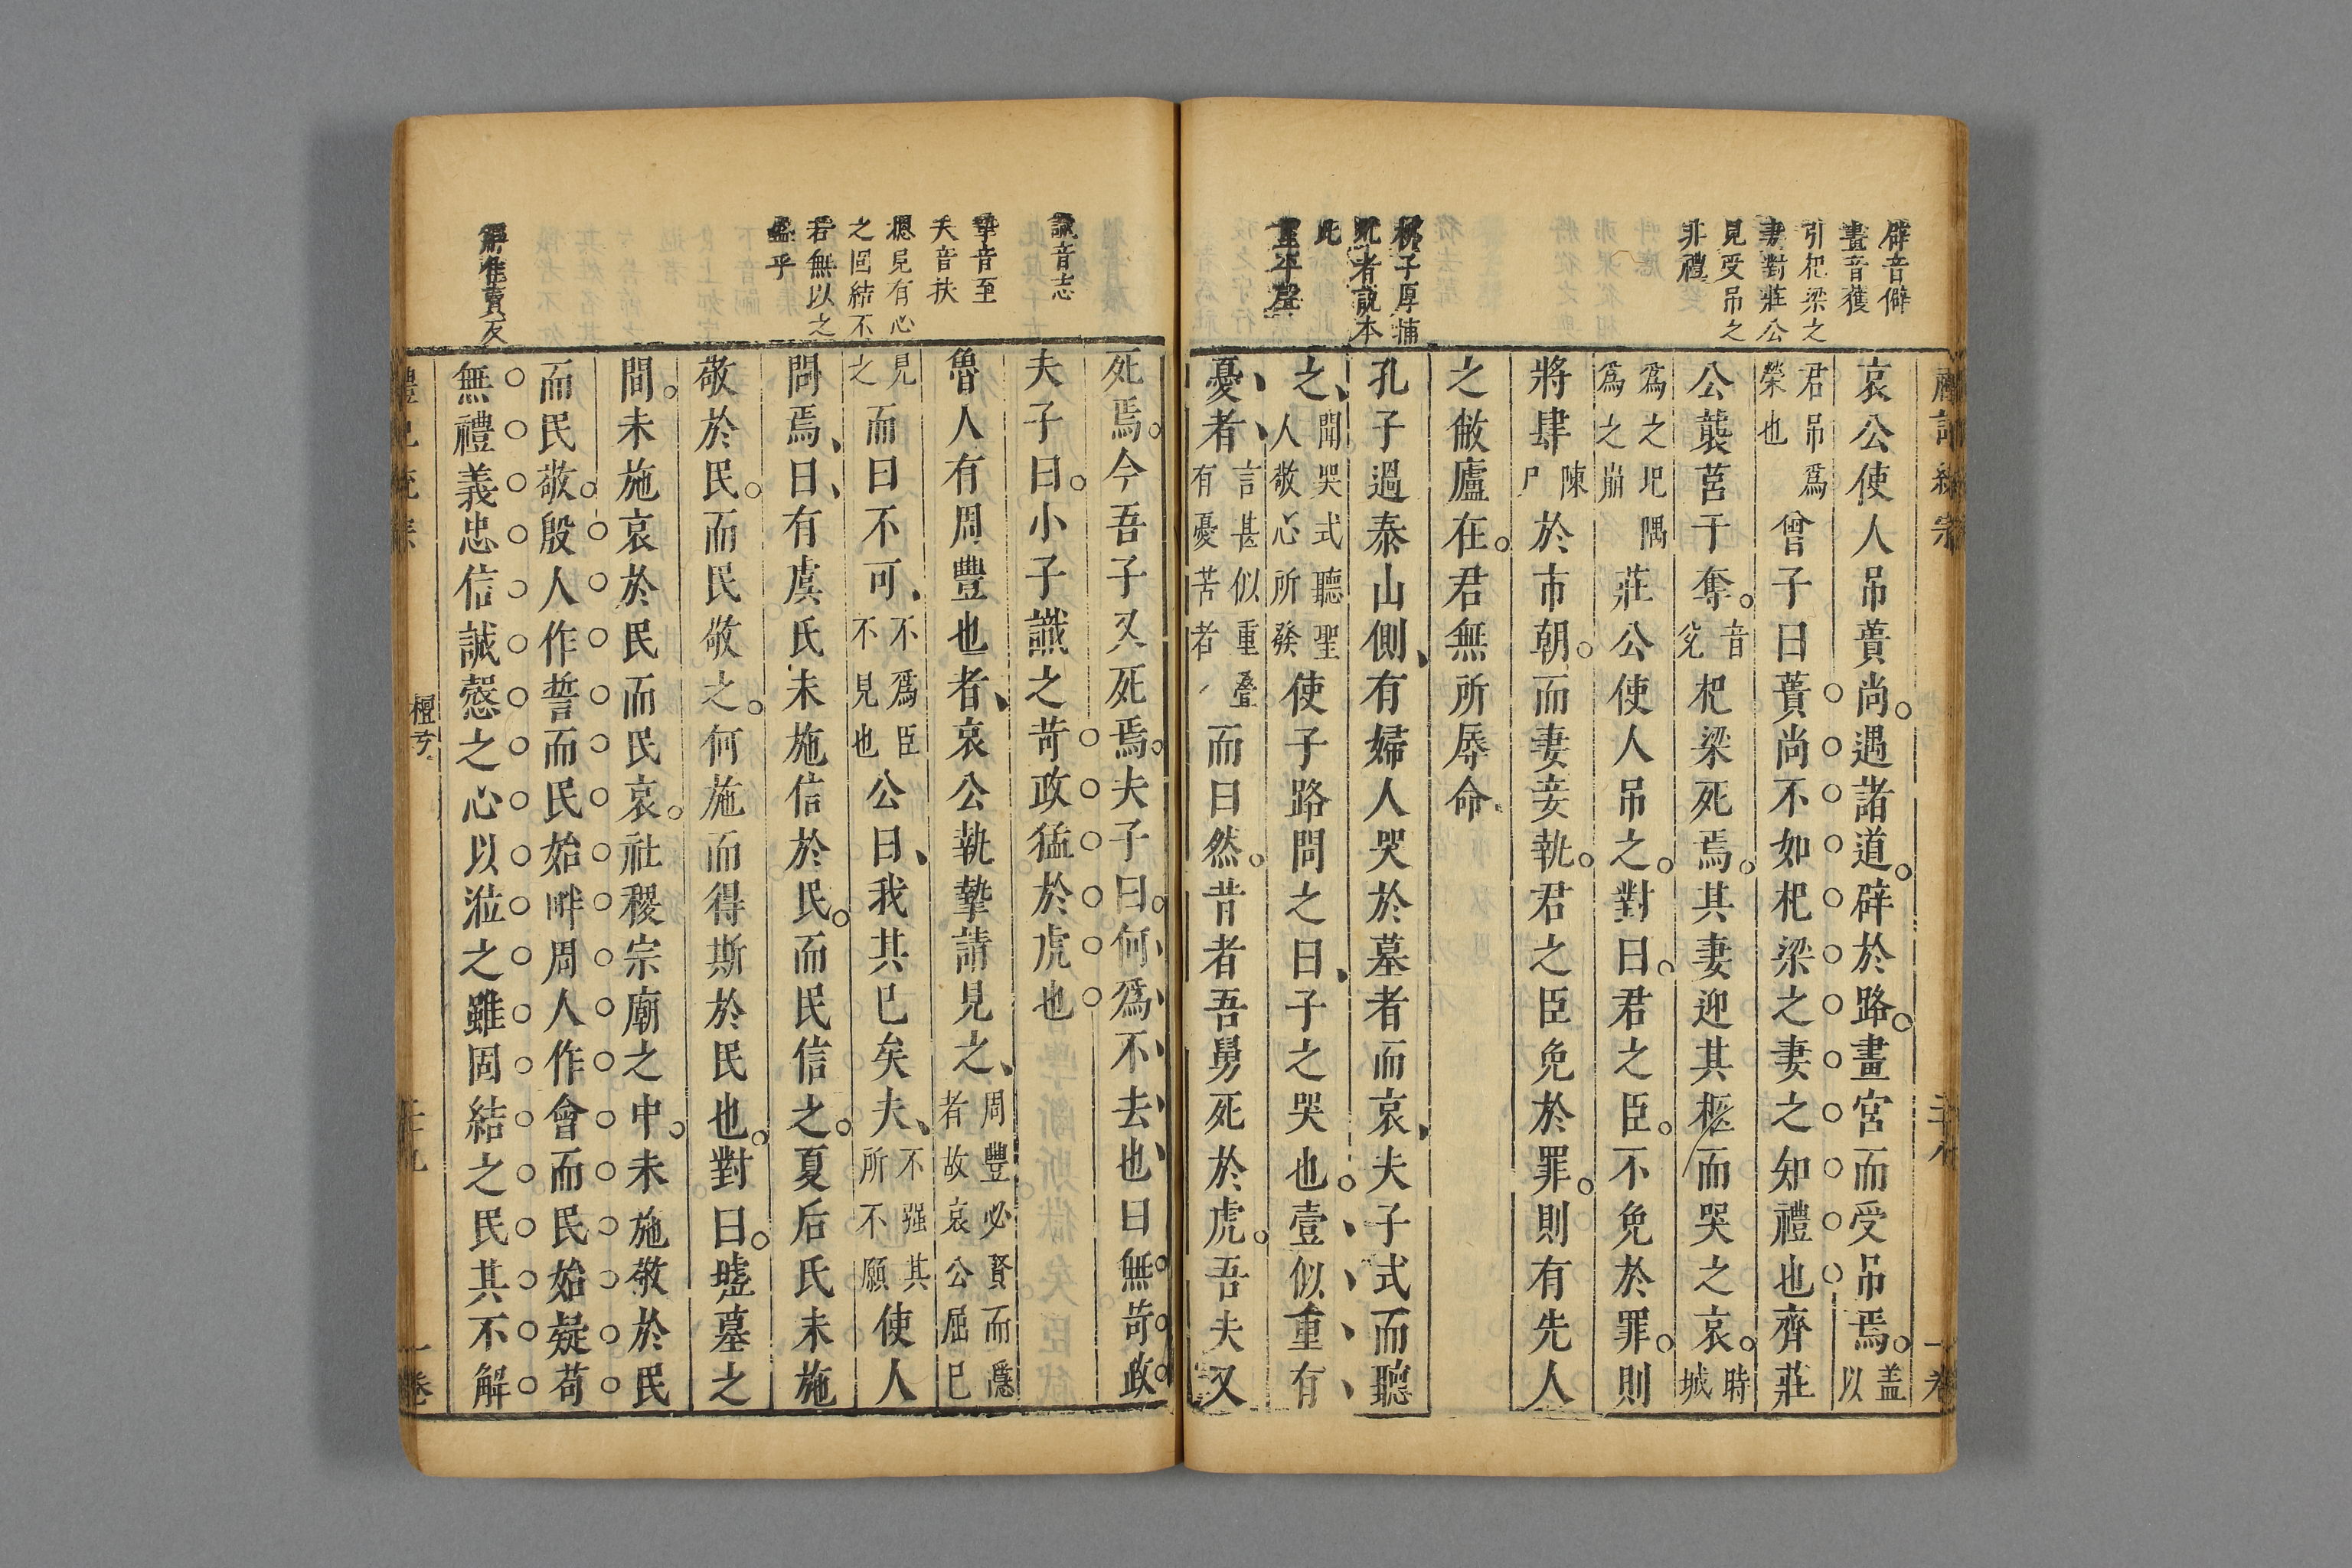 辟音僻
畫音獲
引杞梁之
妻對莊公
見受吊之
非禮
柳子厚捕
蛇者説本
此
重平聲
哀公使人吊蕢尚遇諸道辟於路畫宮而受吊焉盖以
君吊爲榮也曾子曰蕢尚不如杞梁之妻之知禮也齊莊
公襲莒于奪音兊杞梁死焉其妻迎其柩而哭之哀時城
爲之圯隅爲之崩莊公使人吊之對曰君之臣不免於罪則
將肆陳尸於市朝而妻妾執君之臣免於罪則有先人
之敝廬在君無所辱命
孔子過泰山側有婦人哭於墓者而哀夫子式而聽
之聞哭式聽聖人敬心所發使子路問之曰子之哭也壹似重有
憂者言甚似重疊有憂苦者而曰然昔者吾舅死於虎吾夫又
識音志
摯音至
夫音扶
愳見有心
之固結不
若無以之
盬乎
解隹賣反
死焉今吾子又死焉夫子曰何爲不去也曰無苛政
夫子曰小子識之苛政猛於虎也
魯人有周豐也者哀公執摯請見之周豐必賢而隱者故哀公屈已
見之而曰不可不爲臣不見也公曰我其已矣夫不强其所不願使人
問焉曰有虞氏未施信於民而民信之夏后氏未施
敬於民而民敬之何施而得斯於民也對曰墟墓之
間未施哀於民而民哀社稷宗廟之中未施敬於民
而民敬殷人作誓而民始畔周人作會而民始疑苟
無禮義忠信誠慤之心以涖之雖固結之民其不解
檀弓
一卷